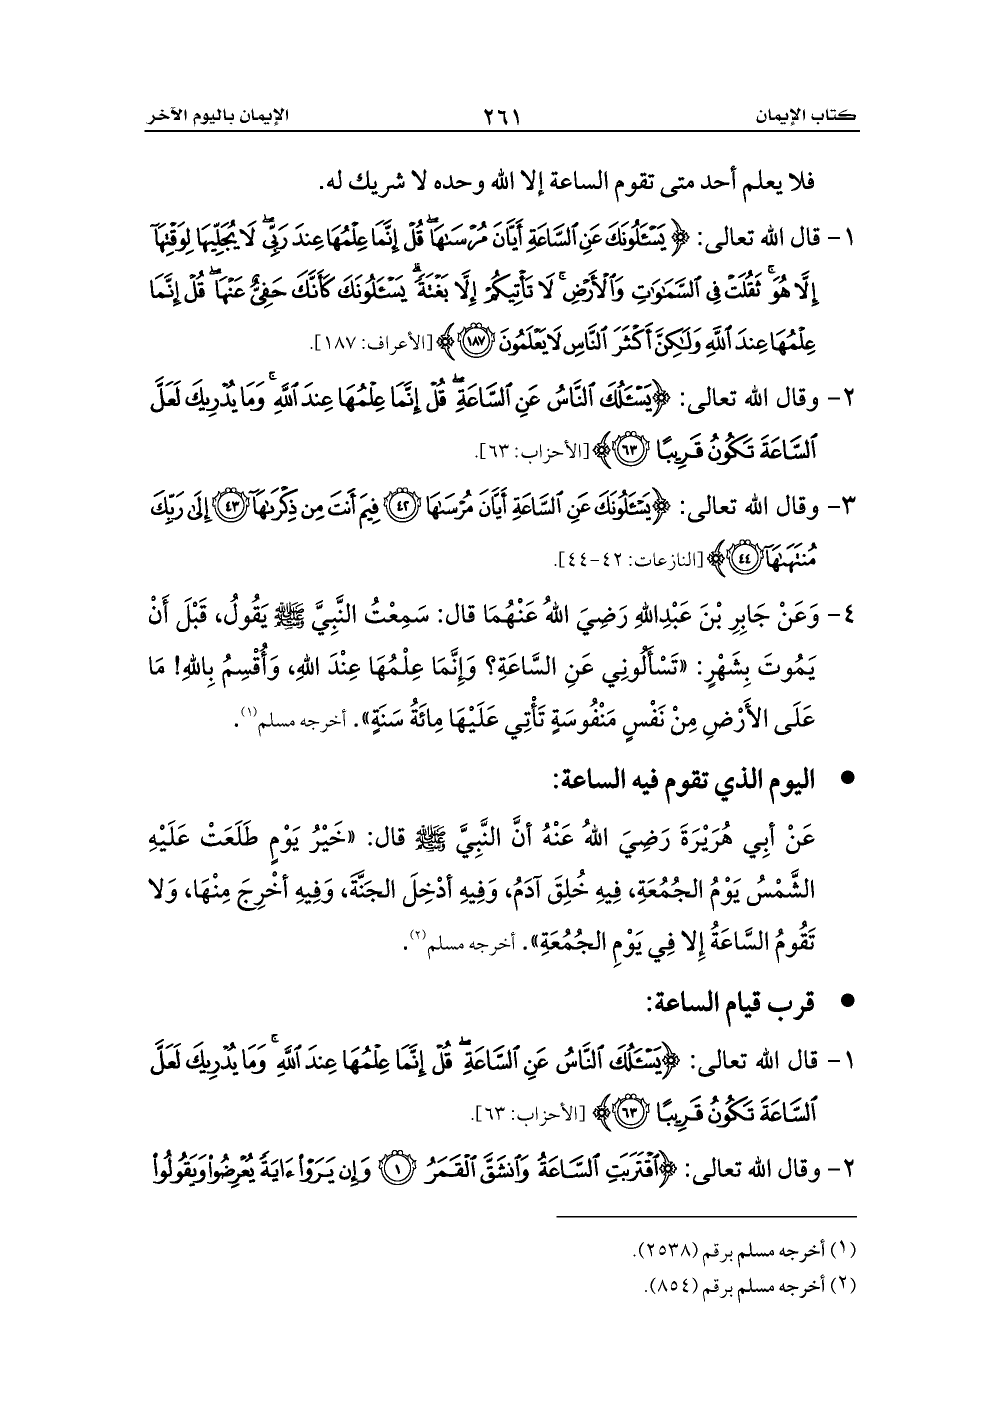 كتاب الإيمان ٢٦١ الإيمان باليوم الآخر
فلا يعلم أحد متى تقوم الساعة إلا الله وحده لا شريك له.
١- قال الله تعالى: ﴿يَسْـَٔلُونَكَ عَنِ ٱلسَّاعَةِ أَيَّانَ مُرْسَىٰهَا ۖ قُلْ إِنَّمَا عِلْمُهَا عِندَ رَبِّى ۖ لَا يُجَلِّيهَا لِوَقْتِهَآ
إِلَّا هُوَ ۚ ثَقُلَتْ فِى ٱلسَّمَـٰوَٰتِ وَٱلْأَرْضِ ۚ لَا تَأْتِيكُمْ إِلَّا بَغْتَةً ۗ يَسْـَٔلُونَكَ كَأَنَّكَ حَفِىٌّ عَنْهَا ۖ قُلْ إِنَّمَا
عِلْمُهَا عِندَ ٱللَّهِ وَلَـٰكِنَّ أَكْثَرَ ٱلنَّاسِ لَا يَعْلَمُونَ ١٨٧﴾ [الأعراف: ١٨٧].
٢- وقال الله تعالى: ﴿يَسْـَٔلُكَ ٱلنَّاسُ عَنِ ٱلسَّاعَةِ ۖ قُلْ إِنَّمَا عِلْمُهَا عِندَ ٱللَّهِ ۚ وَمَا يُدْرِيكَ لَعَلَّ
ٱلسَّاعَةَ تَكُونُ قَرِيبًا ٦٣﴾ [الأحزاب: ٦٣].
٣- وقال الله تعالى: ﴿يَسْـَٔلُونَكَ عَنِ ٱلسَّاعَةِ أَيَّانَ مُرْسَىٰهَا ٤٢ فِيمَ أَنتَ مِن ذِكْرَىٰهَآ ٤٣ إِلَىٰ رَبِّكَ
مُنتَهَىٰهَآ ٤٤﴾ [النازعات: ٤٢-٤٤].
٤- وَعَنْ جَابِرِ بْنَ عَبْدِاللهِ رَضِيَ اللهُ عَنْهُمَا قال: سَمِعْتُ النَّبِيَّ ﷺ يَقُولُ، قَبْلَ أَنْ
يَمُوتَ بِشَهْرٍ: «تَسْأَلُونِي عَنِ السَّاعَةِ؟ وَإِنَّمَا عِلْمُهَا عِنْدَ اللهِ، وَأُقْسِمُ بِاللهِ! مَا
عَلَى الأَرْضِ مِنْ نَفْسٍ مَنْفُوسَةٍ تَأْتِي عَلَيْهَا مِائَةُ سَنَةٍ». أخرجه مسلم(١).
● اليوم الذي تقوم فيه الساعة:
عَنْ أبِي هُرَيْرَةَ رَضِيَ اللهُ عَنْهُ أنَّ النَّبِيَّ ﷺ قال: «خَيْرُ يَوْمٍ طَلَعَتْ عَلَيْهِ
الشَّمْسُ يَوْمُ الجُمُعَةِ، فِيهِ خُلِقَ آدَمُ، وَفِيهِ أدْخِلَ الجَنَّةَ، وَفِيهِ أخْرِجَ مِنْهَا، وَلا
تَقُومُ السَّاعَةُ إلا فِي يَوْمِ الجُمُعَةِ». أخرجه مسلم(٢).
● قرب قيام الساعة:
١- قال الله تعالى: ﴿يَسْـَٔلُكَ ٱلنَّاسُ عَنِ ٱلسَّاعَةِ ۖ قُلْ إِنَّمَا عِلْمُهَا عِندَ ٱللَّهِ ۚ وَمَا يُدْرِيكَ لَعَلَّ
ٱلسَّاعَةَ تَكُونُ قَرِيبًا ٦٣﴾ [الأحزاب: ٦٣].
٢- وقال الله تعالى: ﴿ٱقْتَرَبَتِ ٱلسَّاعَةُ وَٱنشَقَّ ٱلْقَمَرُ ١ وَإِن يَرَوْا۟ ءَايَةً يُعْرِضُوا۟ وَيَقُولُوا۟
(١) أخرجه مسلم برقم (٢٥٣٨).
(٢) أخرجه مسلم برقم (٨٥٤).